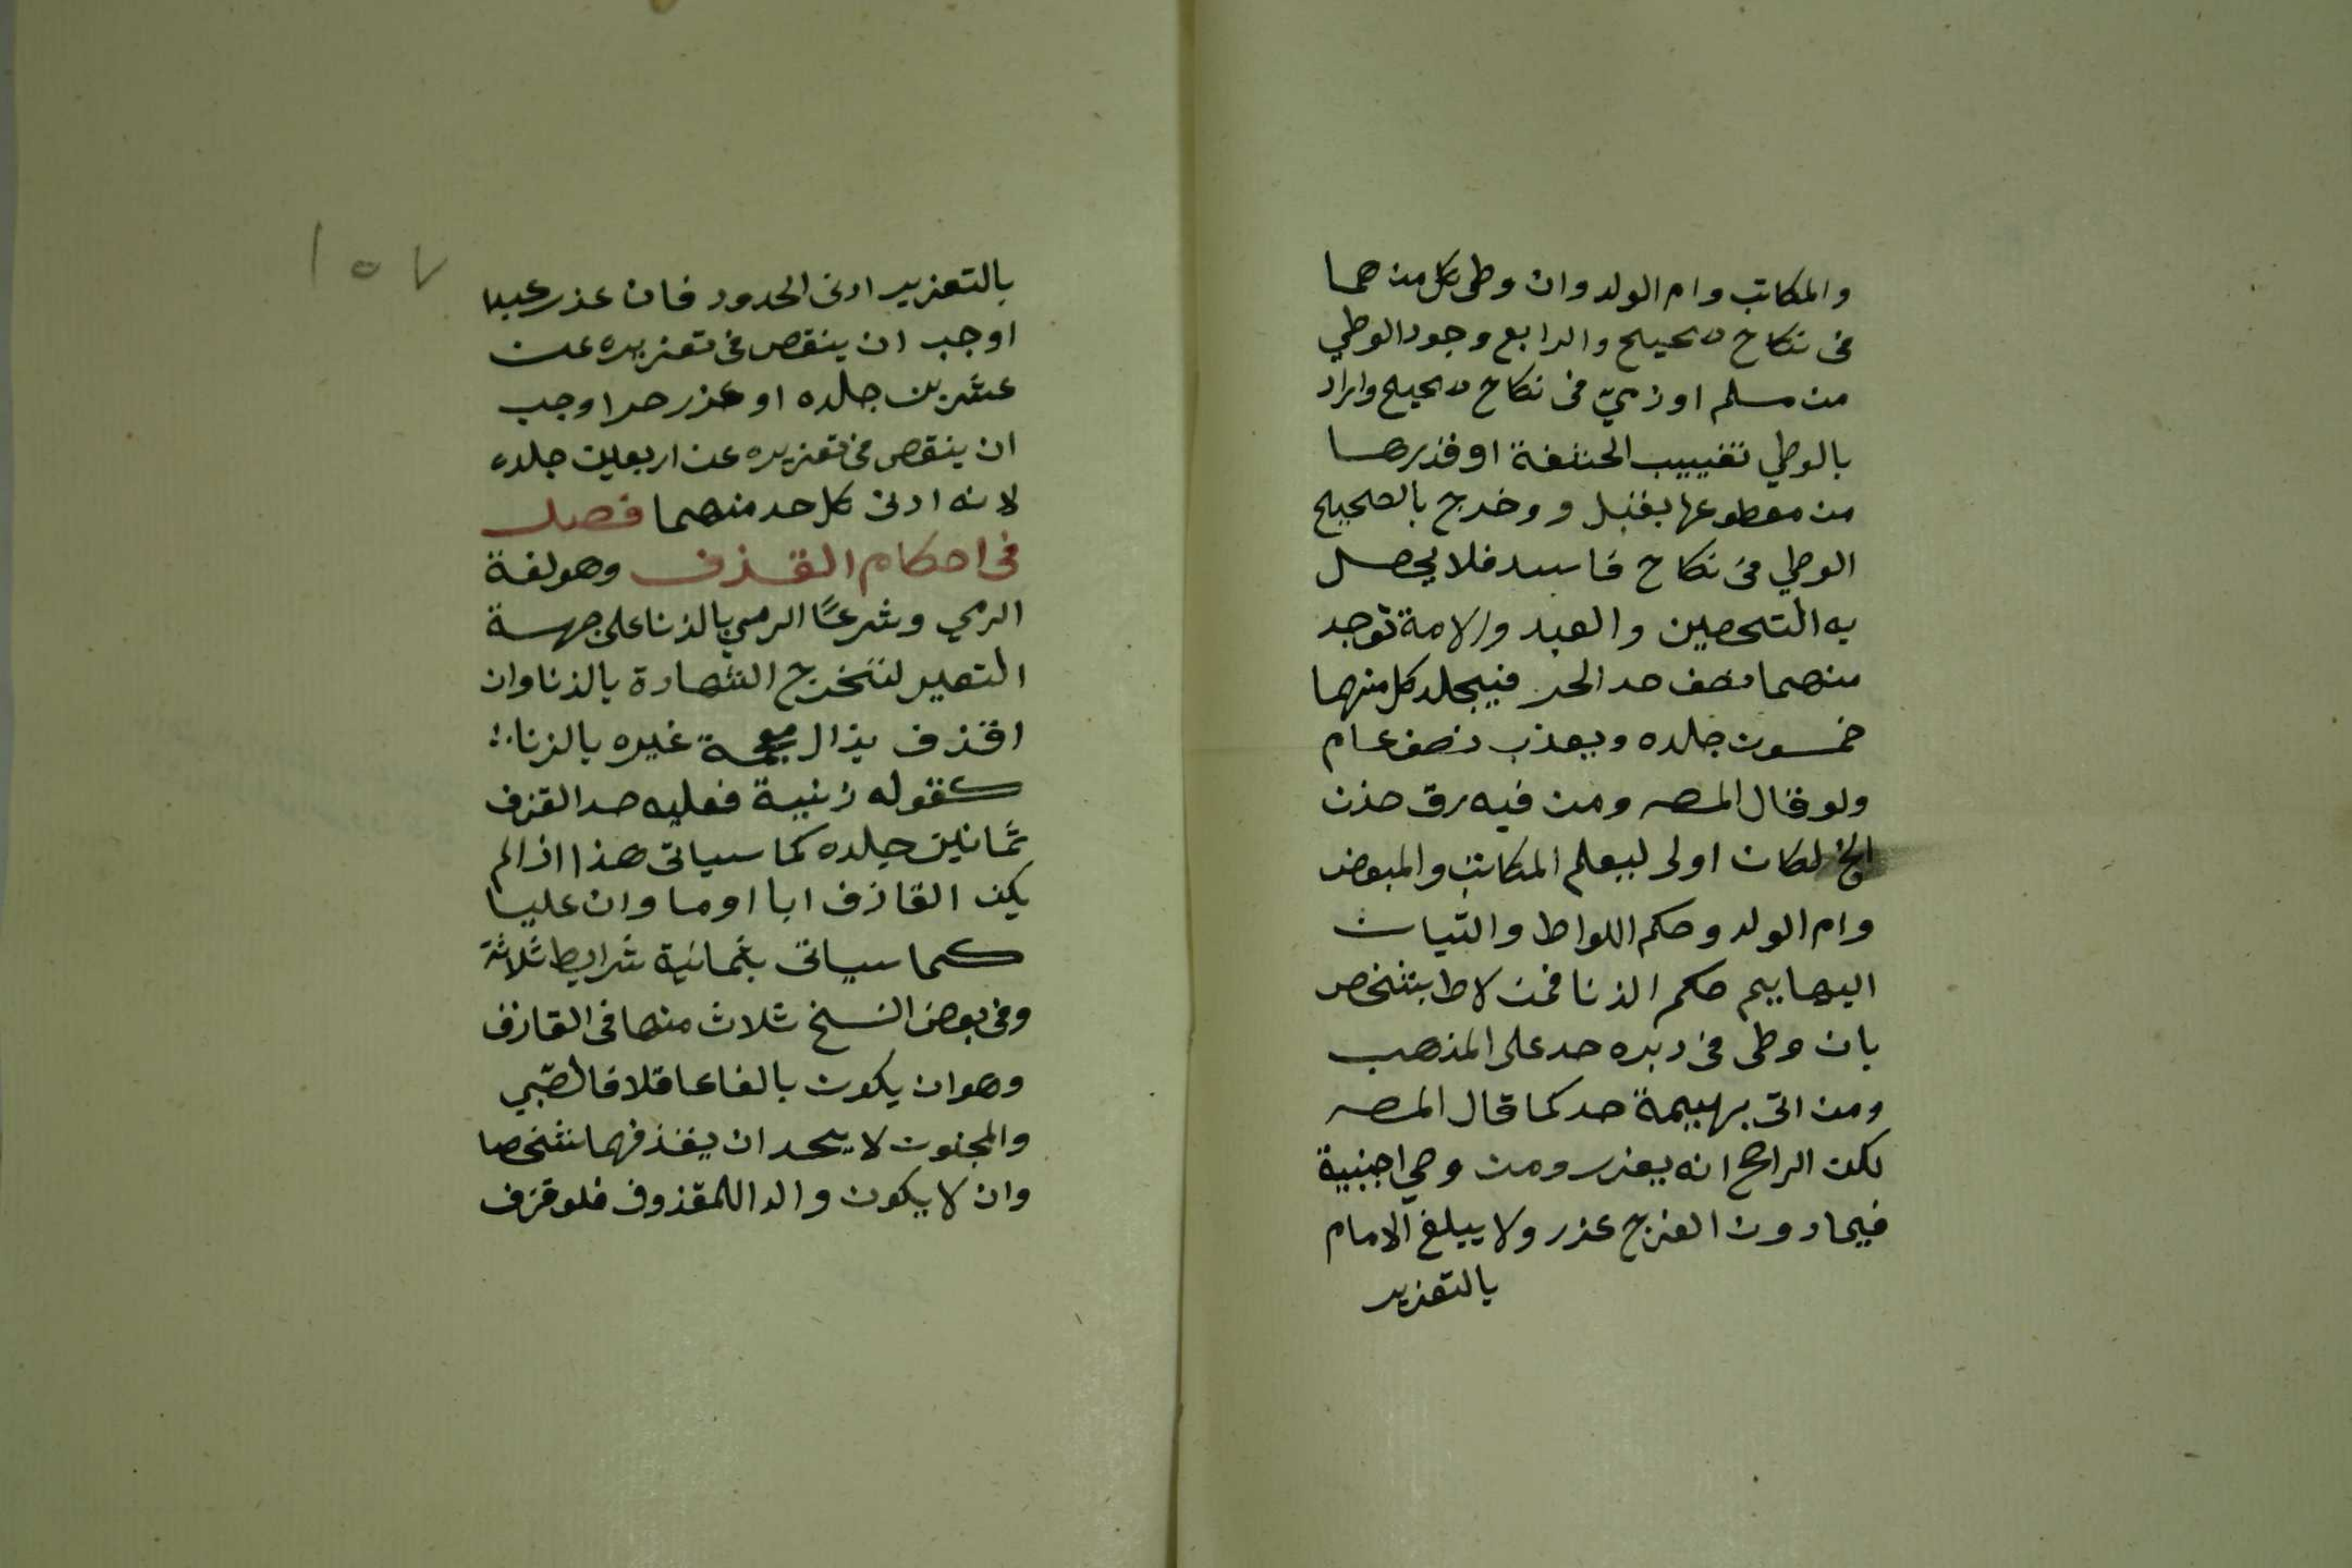 والمكاتب وام الولد وان وطى كل منهما
فى نكاح صحيح والرابع وجود الوطي
من مسلم او ذميّ فى نكاح صحيح واراد
بالوطي تغييب الحشفة او قدرها
من مقطوعها بقبل و وخرج بالصحيح
الوطي فى نكاح فاسد فلا يحصل
به التحصين والعبد والامة توجد
منهما نصف حد الحر فيجلد كل منهما
خمسون جلده ويعذب نصف عام
ولو قال المصـ ومن فيه رق حذن
الخ لكان اولى ليعلم المكاتب والمبعض
وام الولد وحكم اللواط واتيان
البهايم حكم الزنا فمن لاط بشخص
بان وطى فى دبره حد على المذهب
ومن اتى بهيمة حد كما قال المصـ
لكن الراجح انه يعزر ومن وطي اجنبية
فيما دون الفرج عذر ولا يبلغ الامام
بالتعزير
١٥٧
بالتعزير ادنى الحدود فان عذر عبدا
اوجب ان ينقص فى تعزيره عن
عشرين جلده او عذر حرا وجب
ان ينقص فى تعزيره عن اربعين جلده
لانه ادنى كل حد منهما فصل
فى احكام القذف وهو لغة
الرمي وشرعًا الرمي بالزنا على جهة
التعير لتخرج الشهادة بالزنا وان
اقذف بذال معجمة غيره بالزنا
كقوله زنية فعليه حد القذف
ثمانين جلده كما سياتى هذا اذا لم
يكن القاذف ابا او ما وان عليا
كما سياتى بثمانية شرايط ثلاثة
وفى بعض النسخ ثلاث منها فى القاذف
وهو ان يكون بالغا عاقلا فالصّبي
والمجنون لا يحد ان يقذفهما شخصا
وان لا يكون والدا للمقذوف فلو قذف